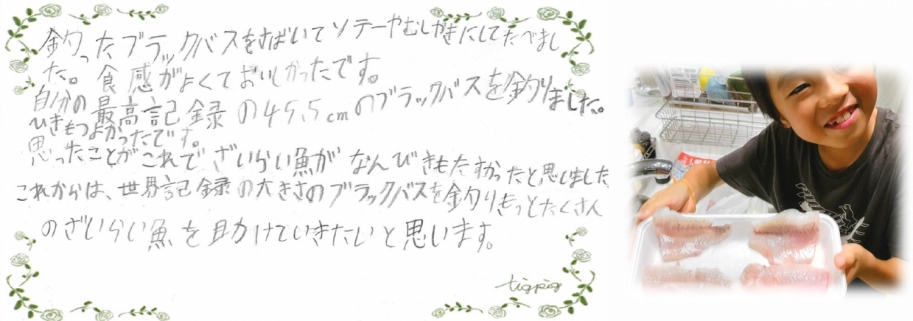 釣ったブラックバスをさばいてソテーやむしやきにしてたべまし
た。食感がよくておいしかったです。
自分の最高記録の45.5cmのブラックバスを釣りました。
ひきもつよかったです。
思ったことがこれでざいらい魚がなんびきもたすかったと思しました
これからは、世界記録の大きさのブラックバスを釣りもっとたくさん
のざいらい魚を助けていきたいと思います。